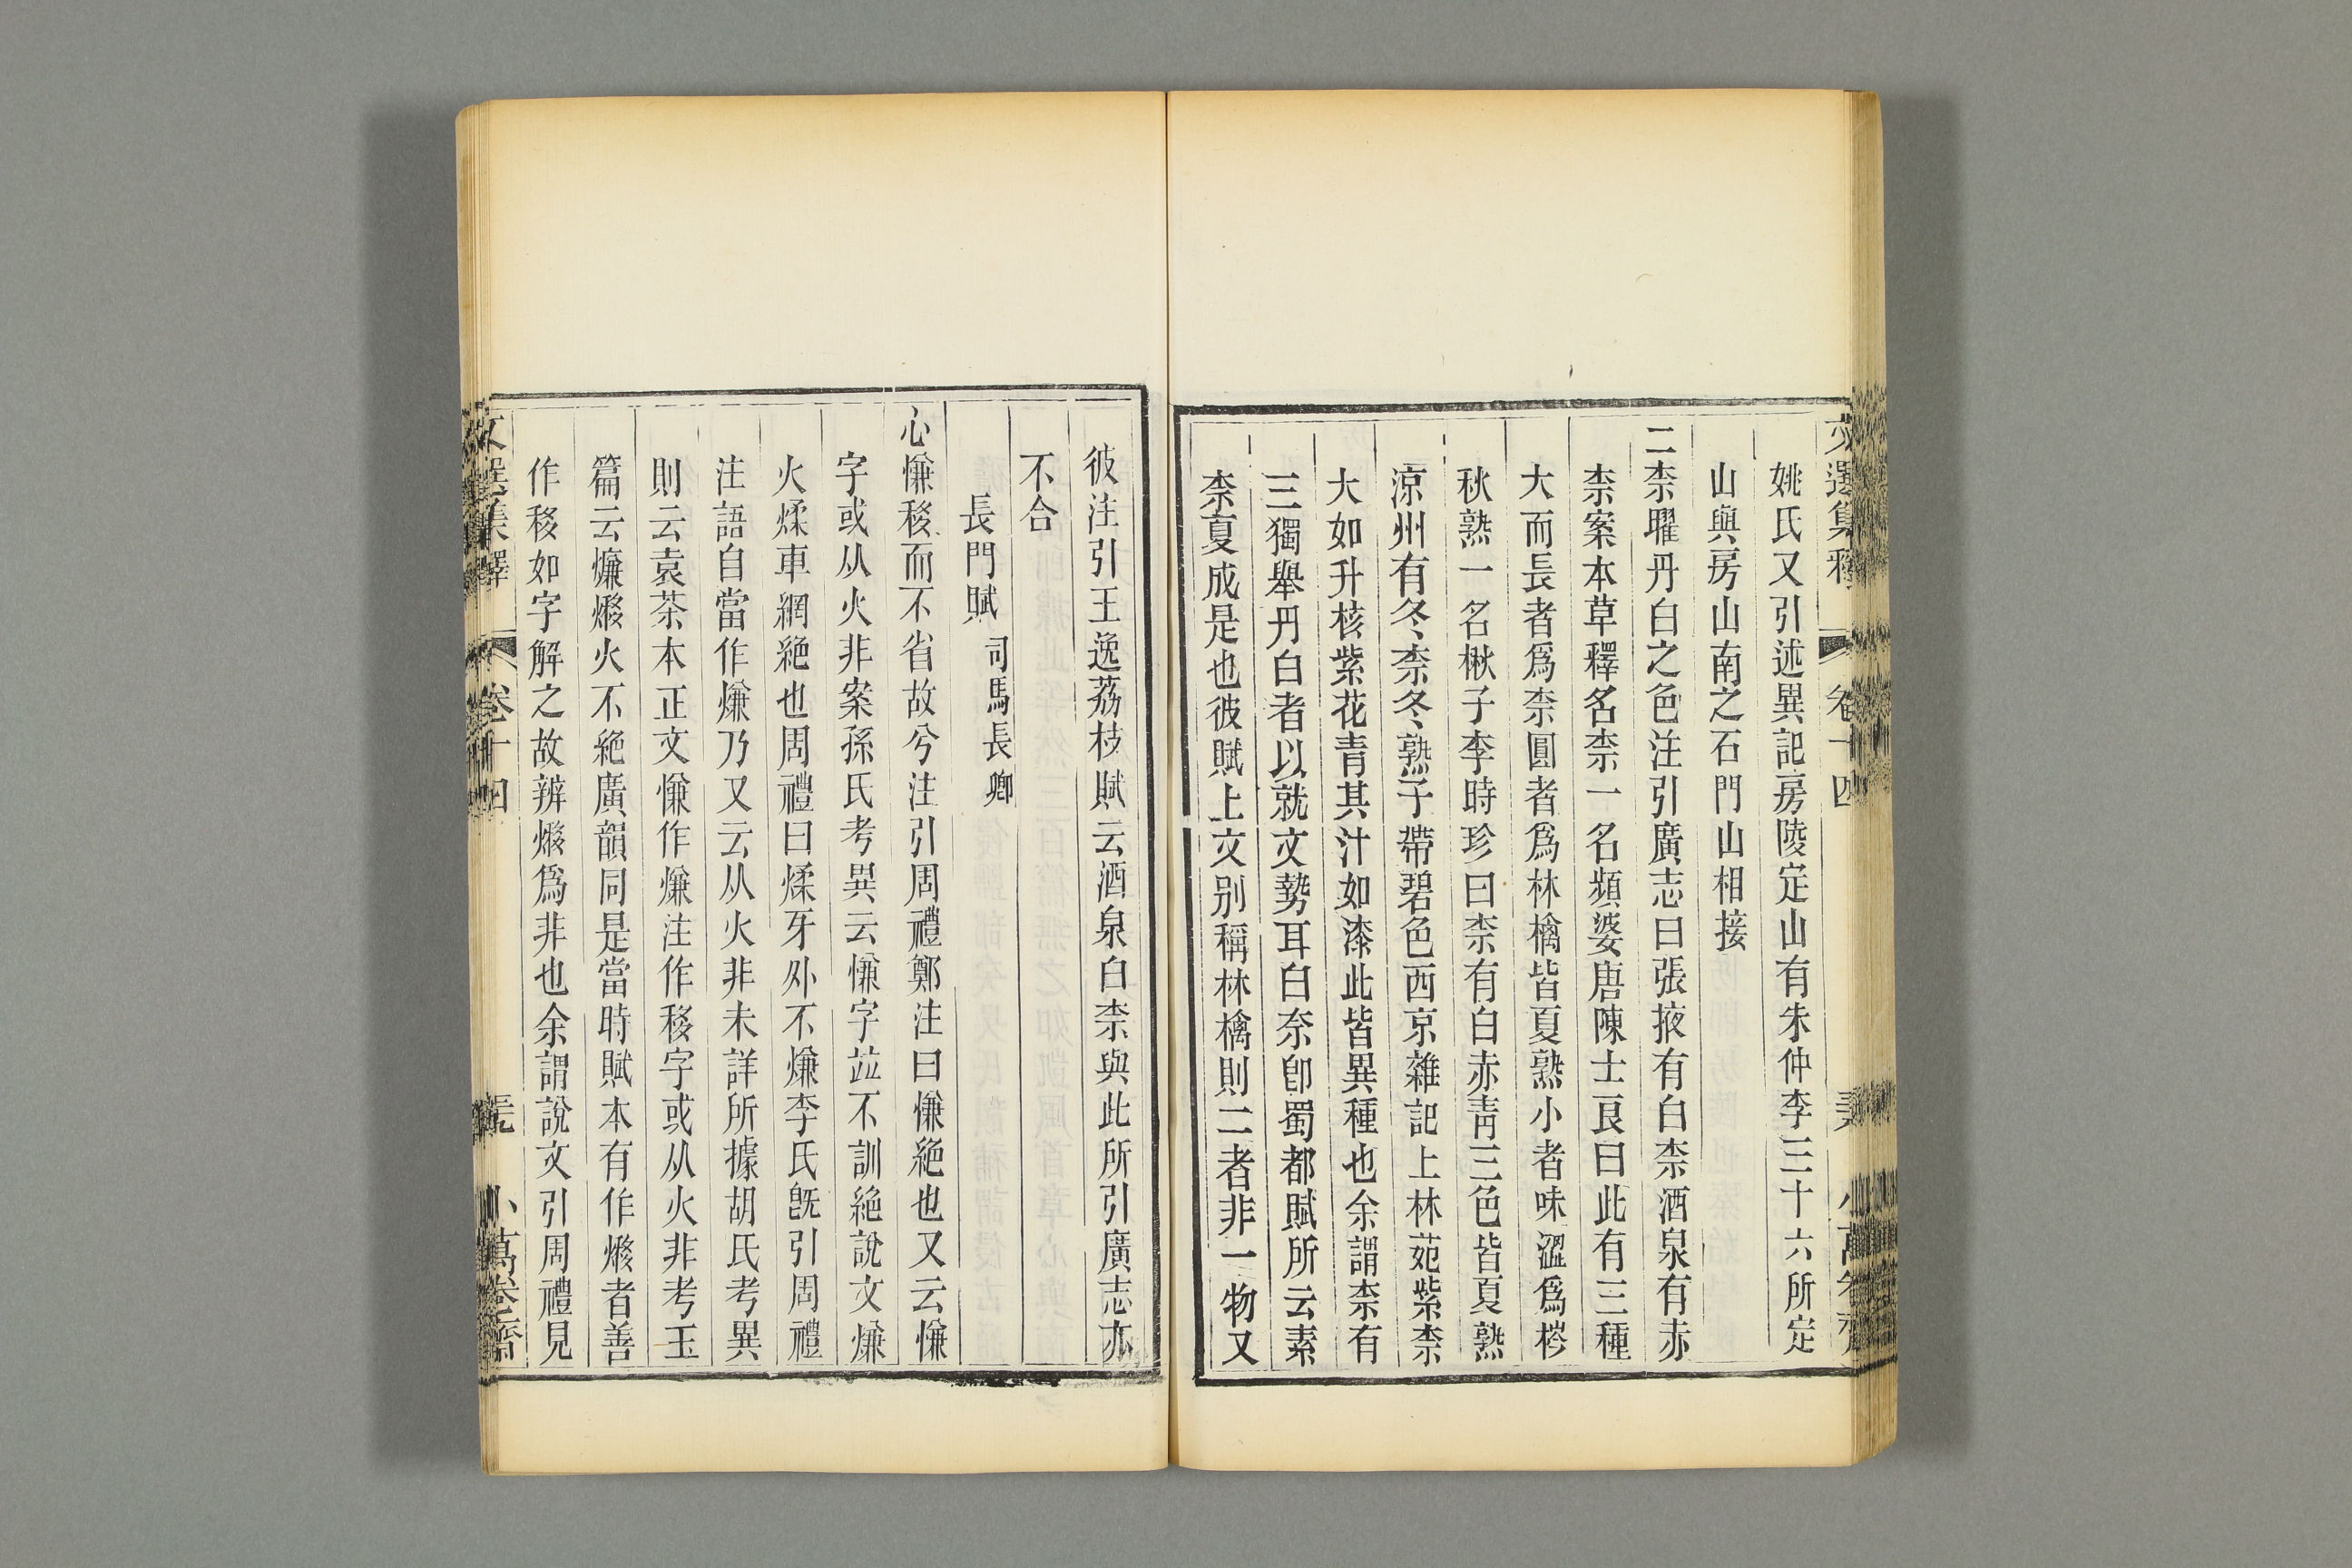 文選集釋 卷十四 小萬卷齋
姚氏又引述異記房陵定山有朱仲李三十六所定
山與房山南之石門山相接
二柰曜丹白之色注引廣志曰張掖有白柰酒泉有赤
柰案本草釋名柰一名頻婆唐陳士良曰此有三種
大而長者爲柰圓者爲林檎皆夏熟小者味澀爲梣
秋熟一名楸子李時珍曰柰有白赤青三色皆夏熟
涼州有冬柰冬熟子帶碧色西京雜記上林苑紫柰
大如升核紫花青其汁如漆此皆異種也余謂柰有
三獨舉丹白者以就文勢耳白奈卽蜀都賦所云素
柰夏成是也彼賦上文别稱林檎則二者非一物又
彼注引王逸荔枝賦云酒泉白柰與此所引廣志亦
不合
長門賦 司馬長卿
心慊移而不省故兮注引周禮鄭注曰慊絶也又云慊
字或从火非案孫氏考異云慊字竝不訓絶說文熑
火煣車網絶也周禮曰煣牙外不熑李氏旣引周禮
注語自當作熑乃又云从火非未詳所據胡氏考異
則云袁茶本正文慊作熑注作移字或从火非考玉
篇云㷰熪火不絶廣韻同是當時賦本有作熪者善
作移如字解之故辨熪爲非也余謂說文引周禮見
文選集釋 卷十四 小萬卷齋